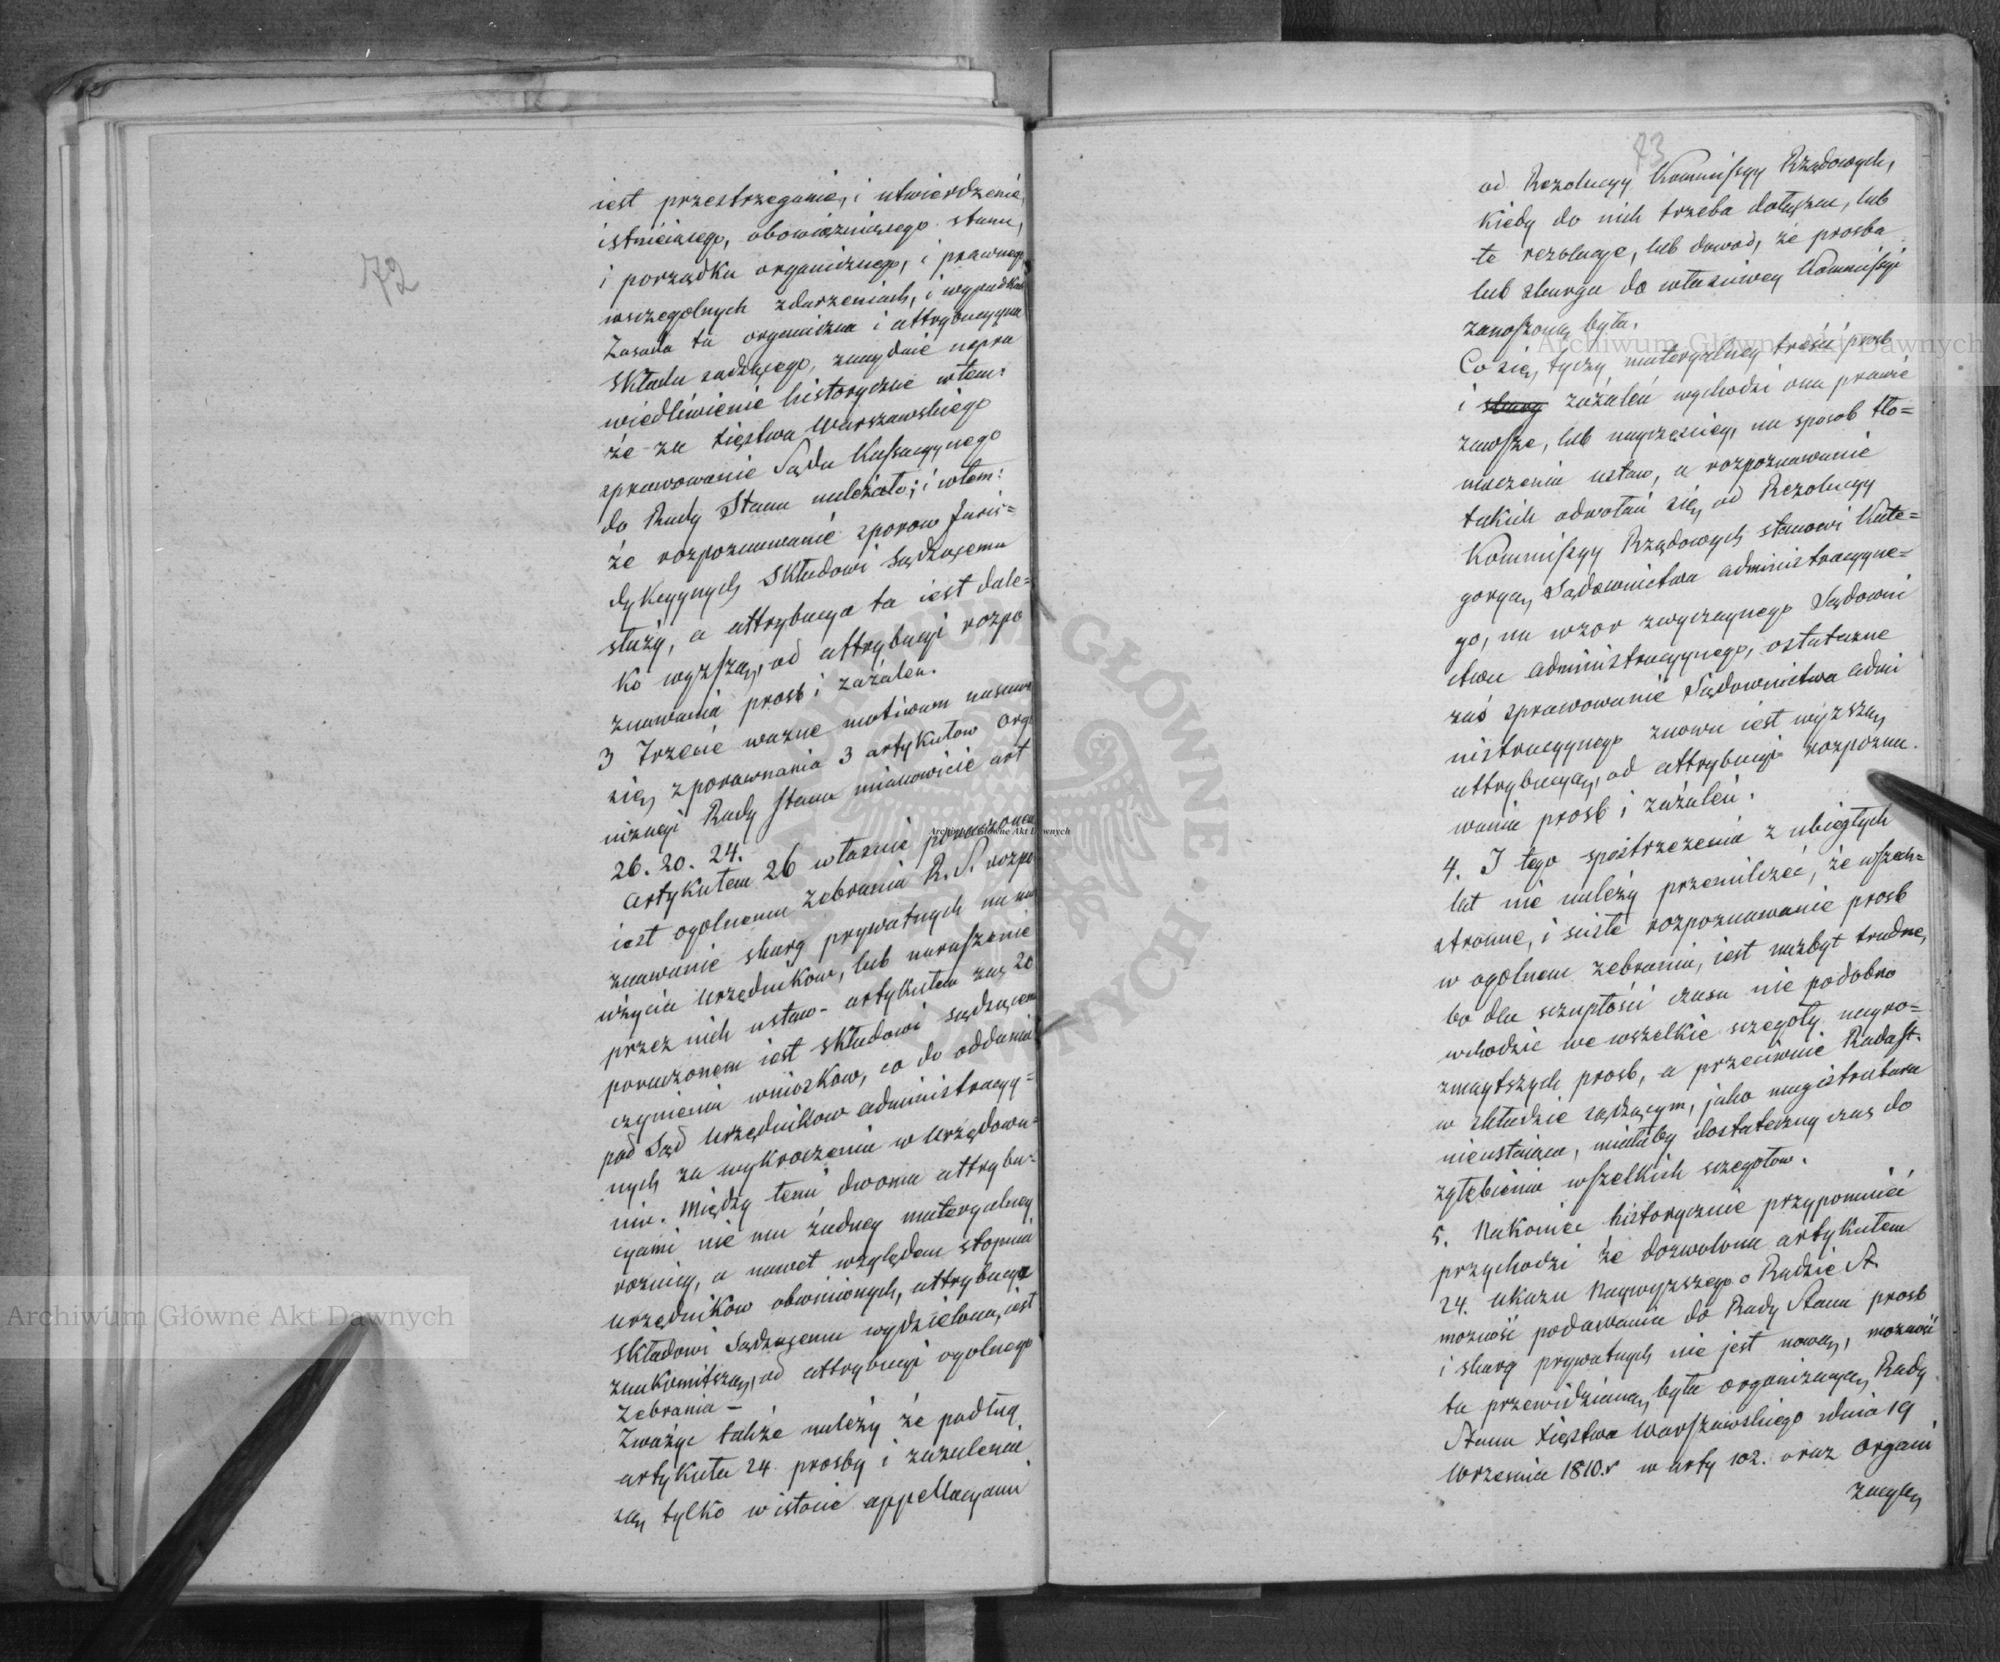 72
iest przestrzeganie, i utwierdzenie,
istnieiącego, obowiązuiącego stanu,
i porządku organicznego, i prawnego
wszczegolnych zdarzeniach, i wypadkach
Zasada ta organiczna i attrybucyyna
Składu sądzącego, znayduie uspra
wiedliwienie historyczne wtem:
że za Xięstwa Warszawskiego
sprawowanie Sądu Kassacyynego
do Rady Stanu należało; i wtem:
że rozpoznawanie sporow Juris=
dykcyynych Składowi Sądzącemu
służy, a attrybucya ta iest dale=
ko wyższą, od attrybucyi rozpo
znawania prosb i zażaleń.
3 Trzecie ważne motiwum nasuwa
się, zporownania 3 artykułow Orga
nizacyi Rady Stanu mianowicie art
26. 20. 24.
Artykułem 26 właśnie poruczone
iest ogolnemu Zebraniu R. S. rozpo
znawanie skarg prywatnych na nad
użycia Urzędnikow, lub naruszenie
przez nich ustaw - artykułem zaś 20
poruczonem iest składowi sądzącemu
czynienie wnioskow, co do oddania
pod Sąd Urzędnikow administracyy=
nych za wykroczenia w Urzędowa=
niu. Między temi dwoma attrybu=
cyami nie ma żadney materyalney
roznicy, a nawet względem stopnia
urzędnikow obwinionych, attrybucya
Składowi Sądzącemu wydzielona, iest
znakomitszą, od attrybucyi ogolnego
Zebrania -
Zważyc także należy że podług
artykułu 24 prosby i zażalenia
są tylko wistocie appellacyami
73
od Rezolucyy Kommissyy Rządowych,
kiedy do nich trzeba dołączac, lub
te rezolucye, lub dowod, że prosba
lub skarga do właściwey Kommissyi
zanoszona była.
Co się, tyczy materyalney treści prosb
i skarg zażaleń wychodzi ona prawie
zawsze, lub nayczęściey, na sposob tło=
maczenia ustaw, a rozpoznawanie
takich odwołań się, od Rezolucyy
Kommissyy Rządowych stanowi Kate=
goryą, Sądownictwa administracyyne=
go, na wzor zwyczaynego Sądowni
ctwa administracyynego, ostateczne
zaś sprawowanie Sądownictwa admi
nistracyynego znowu iest wyższą
attrybucyą, od attrybucyi rozpozna.
wania prosb i zażaleń.
4. I tego spostrzeżenia z ubiegłych
lat nie należy przemilczeć, że wszech=
stronne, i ścisłe rozpoznawanie prosb
w ogolnem zebraniu, iest nazbyt trudne,
bo dla szczupłości czasu nie podobno
wchodzic we wszelkie szczegoły nayro=
zmaytszych prosb, a przeciwnie Rada St.
w składzie sądzącym, jako magistratura
nieustaiąca, miałaby dostateczny czas do
zgłębienia wszelkich szczegołow.
5. Nakoniec historycznie przypomnieć
przychodzi że dozwolona artykułem
24. ukazu Naywyższego o Radzie St.
możność podawania do Rady Stanu prosb
i skarg prywatnych nie jest nową, możność
ta przewidzianą, była organizacyą, Rady
Stanu Xięstwa Warszawskiego zdnia 19
Września 1810.r w arty 102. oraz Organi
zacyą,
Archiwum Główne Akt Dawnych
Archiwum Główne Akt Dawnych
Archiwum Główne Akt Dawnych